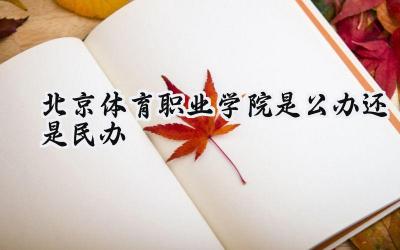 北京体育职业学院是公办还
是民办